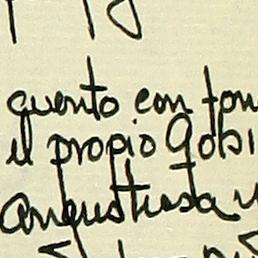 cuento con ton
el propio Gobi
angustiada y